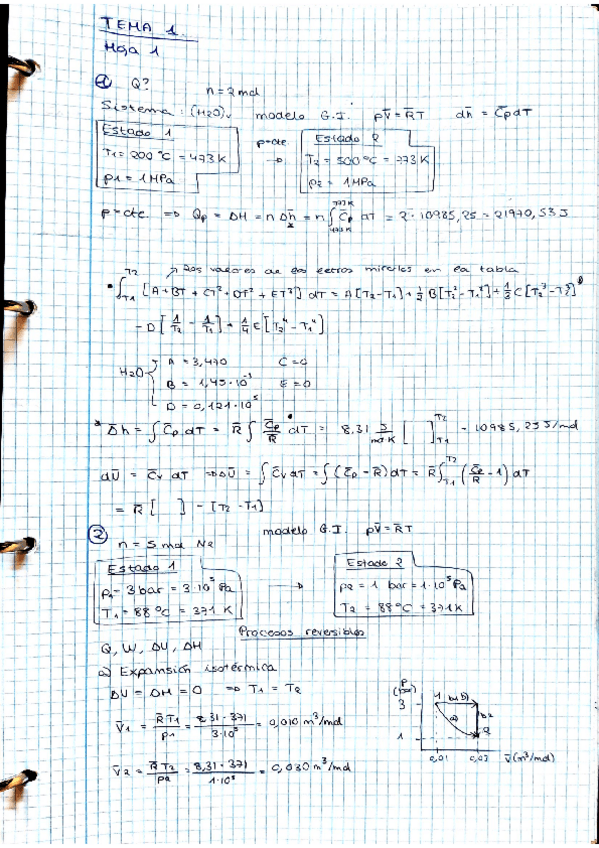 TEMA 1.
Hoja 1
① Q?
n = 2 mol
Sistema: (H2O)v modelo G.I. pV̄ = R̄T dh̄ = C̄p dT
Estado 1
T1 = 200 ºC = 473 K
p1 = 1 MPa
p=cte
→
Estado 2
T2 = 500 ºC = 773 K
p2 = 1 MPa
p=cte ⇒ Qp = ΔH = n Δh̄ = n ∫ C̄p dT = 2 · 10985,25 = 21970,53 J
773 K
473 K
↗ Los valores de las letras mirarlas en la tabla
• ∫ T1 T2 [A+BT+CT²+DT⁻²+ET³] dT = A[T2-T1] + 1/2 B[T2²-T1²] + 1/3 C[T2³-T1³]
- D[1/T2 - 1/T1] + 1/4 E[T2⁴-T1⁴]
H2O { A = 3,470 C = 0
B = 1,45·10⁻³ E = 0
D = 0,121·10⁵
Δh̄ = ∫ C̄p dT = R̄ ∫ C̄p/R̄ dT = 8,31 J/mol K [ ] T1 T2 = 10985,25 J/mol
dū = C̄v dT ⇒ Δū = ∫ C̄v dT = ∫ (C̄p - R̄) dT = R̄ ∫ T1 T2 (C̄p/R̄ - 1) dT
= R [ ] - [T2 - T1]
② modelo G.I. pV̄ = R̄T
n = 5 mol N2
Estado 1
p1 = 3 bar = 3·10⁵ Pa
T1 = 88 ºC = 371 K
→
Estado 2
p2 = 1 bar = 1·10⁵ Pa
T2 = 88 ºC = 371 K
Procesos reversibles
Q, W, ΔU, ΔH
a) Expansión isotérmica
ΔU = ΔH = 0 ⇒ T1 = T2
V̄1 = R̄T1/p1 = 8,31·371/3·10⁵ = 0,010 m³/mol
V̄2 = R̄T2/p2 = 8,31·371/1·10⁵ = 0,030 m³/mol
P
(bar)
3
1
1
b1)
a)
b2
2
0,01
0,03
V̄(m³/mol)